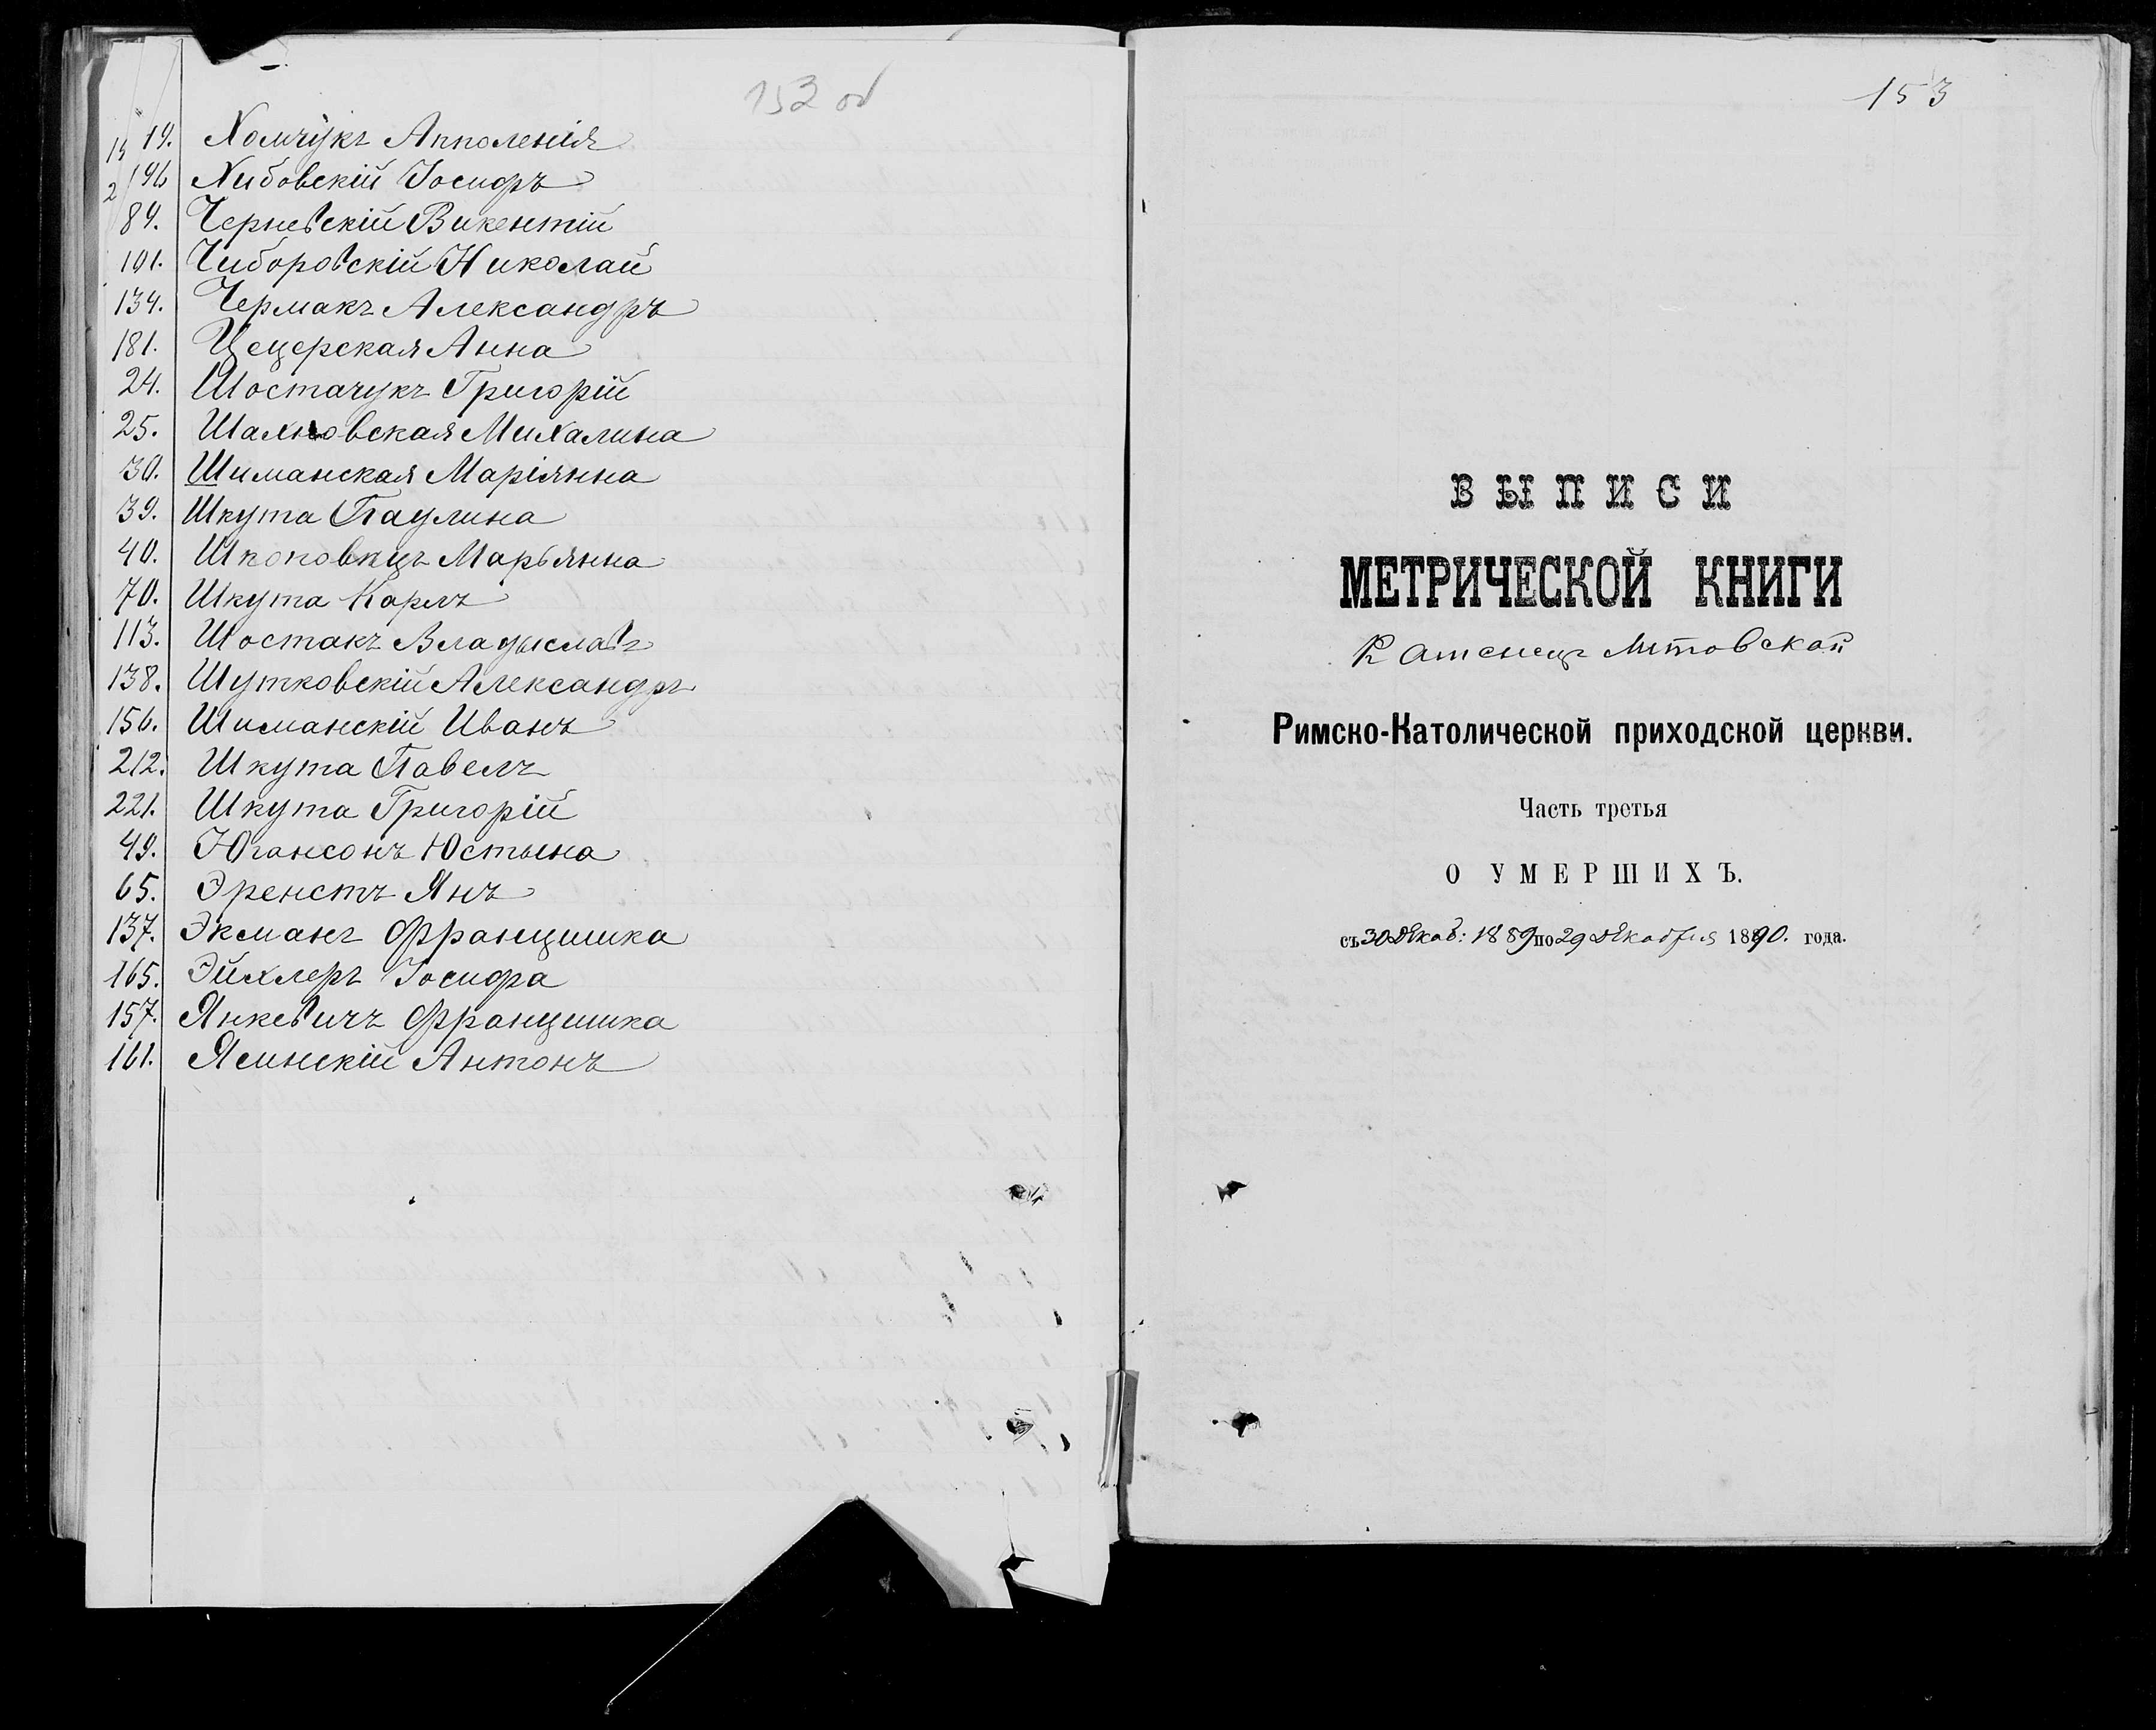 152 об
19. Хомчукъ Апполенія
196 Хибовскій Іосифъ
89. Черневскій Викентій
101. Чиборовскій Николай
134. Чермакъ Александръ
181. Цецерская Анна
24. Шостачукъ Григорій
25. Шахновская Михалина
30. Шиманская Маріянна
39. Шкута Паулина
40. Шкоповецъ Марьянна
70. Шкута Карлъ
113. Шостакъ Владыславъ
138. Шутковскій Александръ
156. Шиманскій Иванъ
212. Шкута Павелъ
221. Шкута Григорій
49. Югансонъ Юстына
65. Эренстъ Янъ
137. Экманъ Францишка
165. Эйхлеръ Іосифа
157. Янкевичъ Францишка
161. Ясинскій Антонъ
153
ВЫПИСИ
МЕТРИЧЕСКОЙ КНИГИ
Каменецъ Литовской
Римско-Католической приходской церкви.
Часть третья
О УМЕРШИХЪ.
съ 30 Декаб: 1889 по 29 Декабря 1890. года.